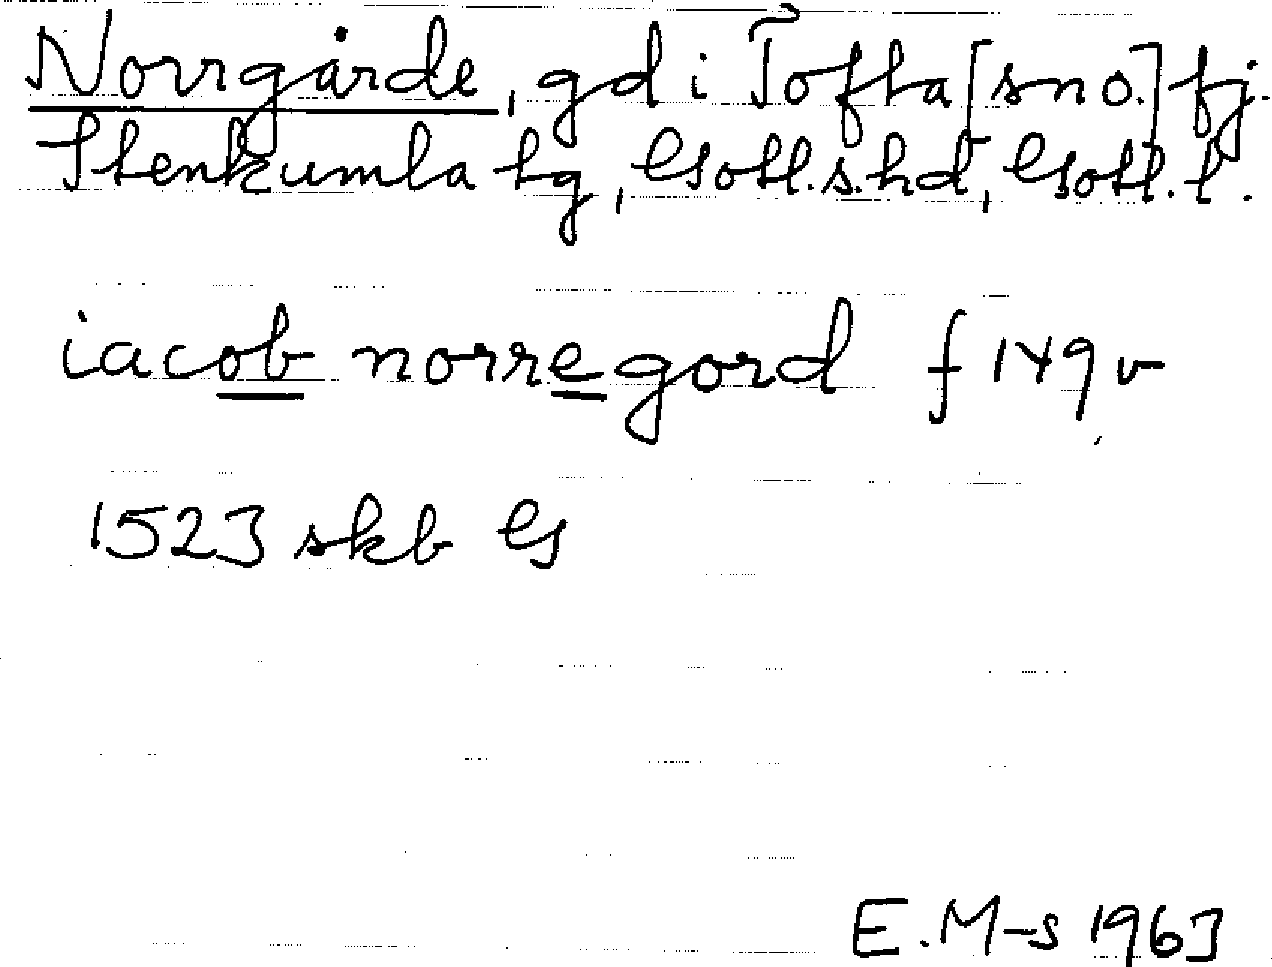 Norrgårde, gd i Tofta [sn o.] fj.
Stenkumla tg, Gotl.s.hd, Gotl. l.
iacob norregord f 149 v
1523 skb G
E.M-s 1963